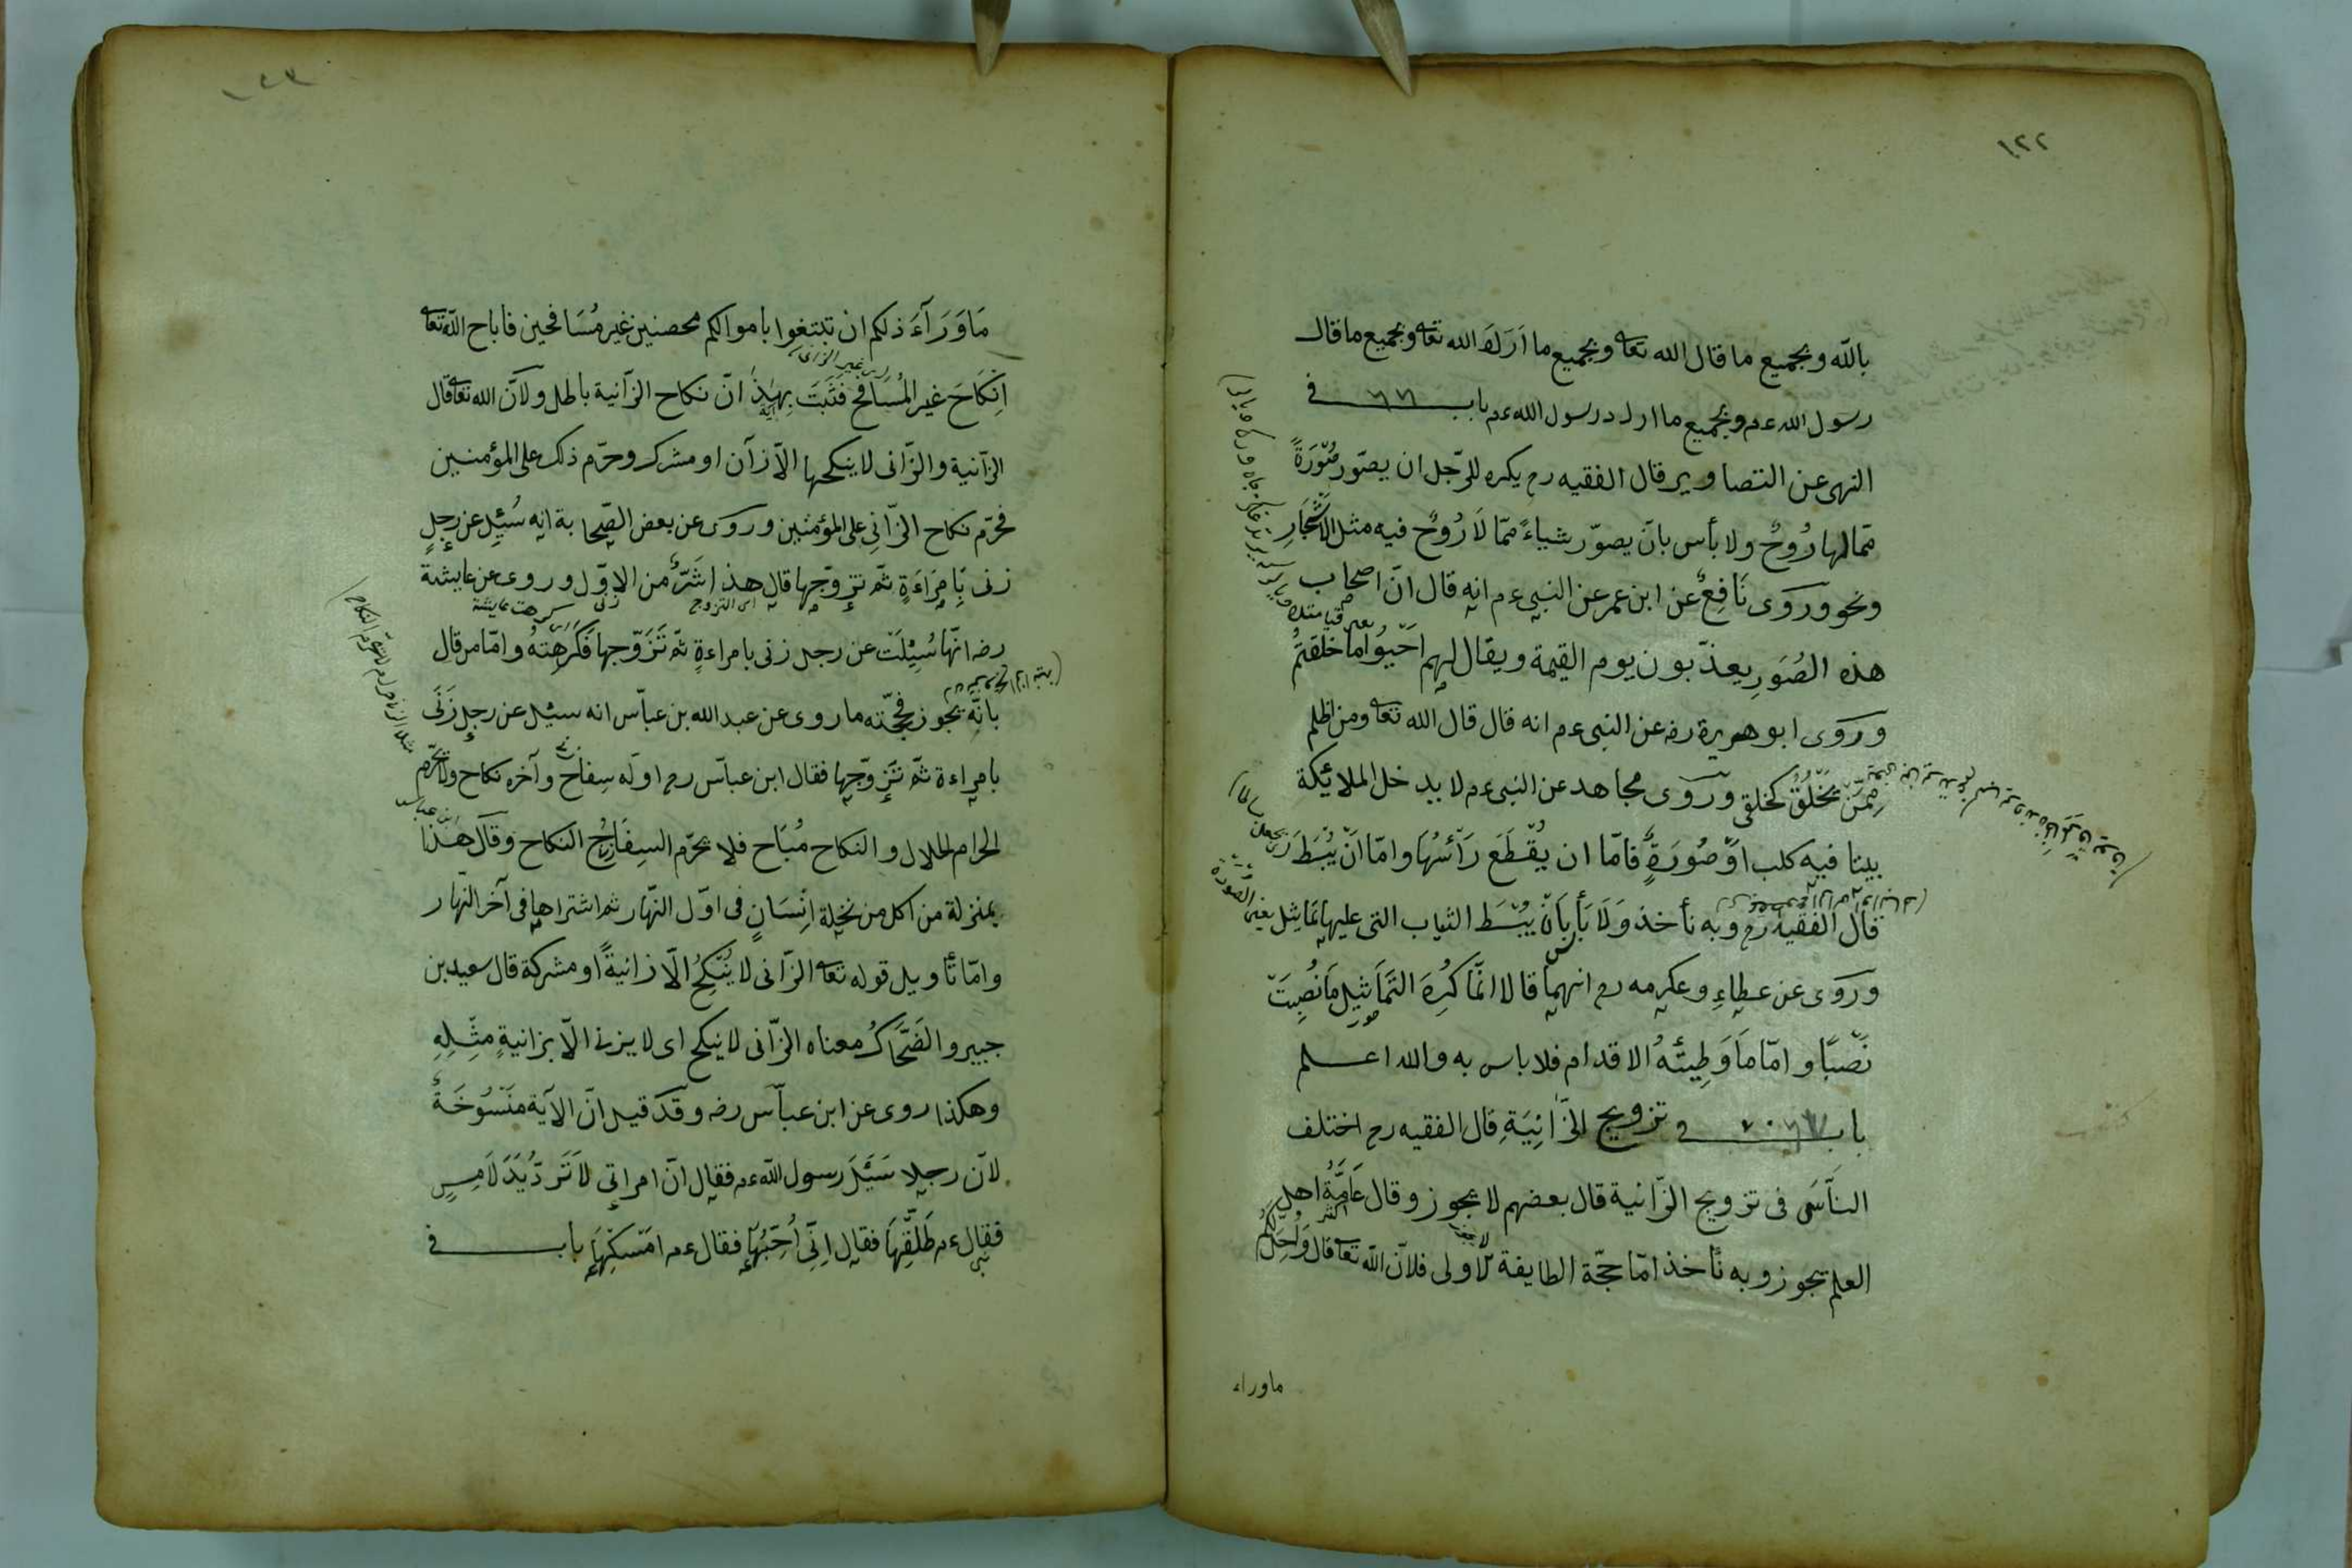 ١٢٢
بالله وبجميع ما قال الله تعا وبجميع ما اَرَادَ الله تعا وبجميع ما قال
رسول الله ءم وبجميع ما اراد رسول الله ءم باب ٦٦ في
النهى عن التصاوير قال الفقيه رح يكره للرّجل ان يصوّر صُوْرَةً
ممّا لها رُوحٌ ولا بأس بانّ يصوّر شياءً ممّا لَا رُوحٌ فيه مثل الاَشْجَارِ
ونحو وروى نَافِعٌ عن ابن عمر عن النبى ءم انه قال انّ اصحاب
هذه الصُوَرِ يعذّبون يوم القيمة ويقال لهم اَحْيُوا ما خلقتُم
وروَى ابو هريرة رض عن النبى ءم انه قال قال الله تعا ومن اظلم
مِمَّنْ يَخْلُقُ كخلقى وروى مجاهد عن النبى ءم لا يدخل الملائكة
بيتا فيه كلب اوْ صُورَةٌ فامّا ان يُقْطَعَ رَأْسُهَا وامّا اَنْ يُبْسَطَ
قال الفقيه رح وبه نأخذ وَلَا بَأْسَ بَاَنْ يُبْسَط الثياب التى عليها تماثيل
وروَى عن عطاءِ وعكرمه رح انهما قالا انّما كُرِهَ التَمَاثيل مَا نُصِبَتْ
نَصْبًا وامّا مَا وَطِيئَهُ الاقدام فلا باس به والله اعلم
باب ٦٧ في تزويج الزّانِيَةِ قال الفقيه رح اختلف
النَّاسُ فى تزويج الزّانية قال بعضهم لا يجوز وقال عَامَّةُ اهل
العلم يجوز وبه نأخذ امّا حجّة الطايفة الاولى فلانّ الله تعا قال وَاُحِلَّ لَكُمْ
ماوراء
١٢٣
مَا وَرَآءَ ذلكم ان تبتغوا باموالكم محصنين غير مُسَافحين فاباح الله تعا
اِنْكَاحَ غير المُسَافح فَثَبَتَ بِهَذَا انّ نكاح الزّانية باطل ولانّ الله تعا قال
الزّانية والزّانى لا ينكحها الاّ زآن او مشرك وحرّم ذلك على المؤمنين
فحرّم نكاح الزّانِي على المؤمنين وروى عن بعض الصّحابة انه سُئِل عن رجلٍ
زنى بِامِرَاءَةٍ ثمّ تزوّجها قال هذا شَرٌّ من الاوّل وروى عن عايشة
اى التزوج زنى كرهت عايشة
رض انّها سُئِلَتْ عن رجل زنى بامراءةٍ ثمّ تَزَوّجها فَكَرِهَتْهُ وامّا من قال
بانّه يجوز فحجّته ما روى عن عبد الله بن عبّاس انه سئل عن رجل زَنَى
بامراءة ثمّ تَزوّجها فقال ابن عباّس رح اوله سِفاح وآخره نكاح ولا يحرّم
الحرام الحلال والنكاح مُبَاح فلا يحرّم السِفَاحُ النكاح وقال هذا
بمنزلة من اكل من نخلة اِنْسَانٍ فى اوّل النّهار ثم اشتراها فى آخر النّهار
وامّا تأويل قوله تعا الزّانى لا يَنْكِحُ الاّ زانيةً او مشركة قال سعيد بن
جبير والضَحَّاكُ معناه الزّانى لا ينكح اى لا يزنى الاّ بزانيةٍ مِثْلِهِ
وهكذا روى عن ابن عبّاس رض وقد قيل انّ الآية مَنْسُوخَةٌ
لانّ رجلا سَئَلَ رسول الله ءم فقال انّ امراتى لاَ تَردّ يَدَ لَامِسٍ
فقال ءم طَلِّقْهَا فقال اِنِّى اُحِبُّهَا فقال ءم امْسَكْهَا باب في